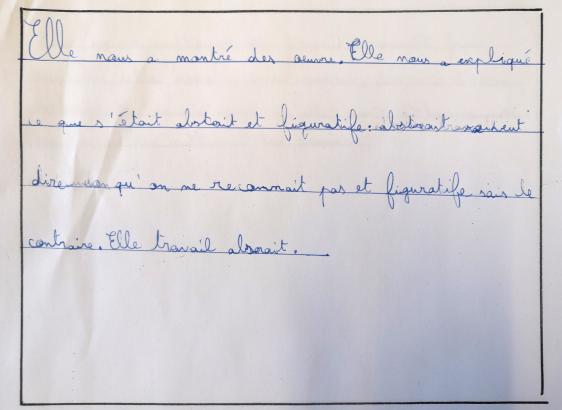 Elle nous a montré des oeuvre. Elle nous a expliqué
ce que s'était abstait et figuratife: abstrait veut
dire qu'on ne reconnait pas et figuratife sais le
contraire. Elle travail absrait.